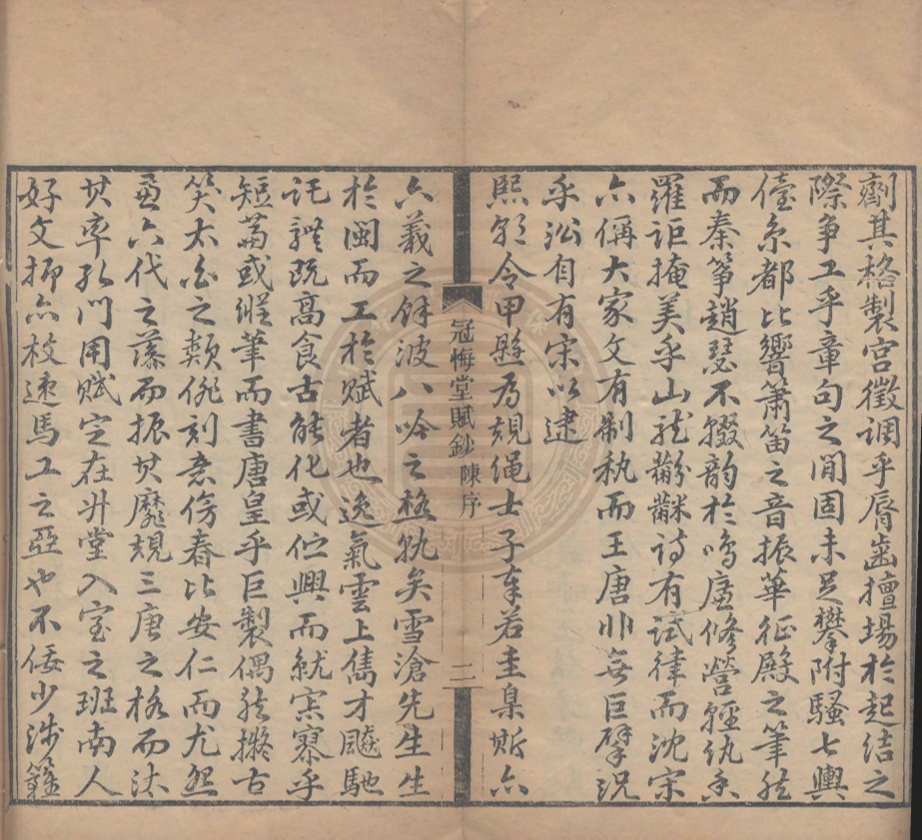 劑其格製宮徵調乎脣齒擅場於起結之
際爭工乎章句之間固未足攀附騷七輿
儓京都比響簫笛之音振華征殿之筆然
而秦箏趙瑟不輟韵於鳴廬修營輕紈
羅詎掩美乎山龍黼黻詩有試律而沈宋
亦稱大家文有制執而王唐非無巨擘況
乎沿自有宋以逮
熙朝令甲縣為規繩士子奉若圭臬斯亦
冠悔堂賦鈔 陳序 二
六義之餘波八吟之極軌矣雪滄先生生
於閩而工於賦者也逸氣雲上儁才飈馳
託體既高食古能化或伫興而就寀寮乎
短篇或縱筆而書唐皇乎巨製偶然擬古
笑太白之類俳刻意傷春比安仁而尤怨
兼六代之藻而振其靡規三唐之格而汰
其率孔門用賦定在升堂入室之班南人
好文抑亦枚速馬工之亞也不佞少涉籓